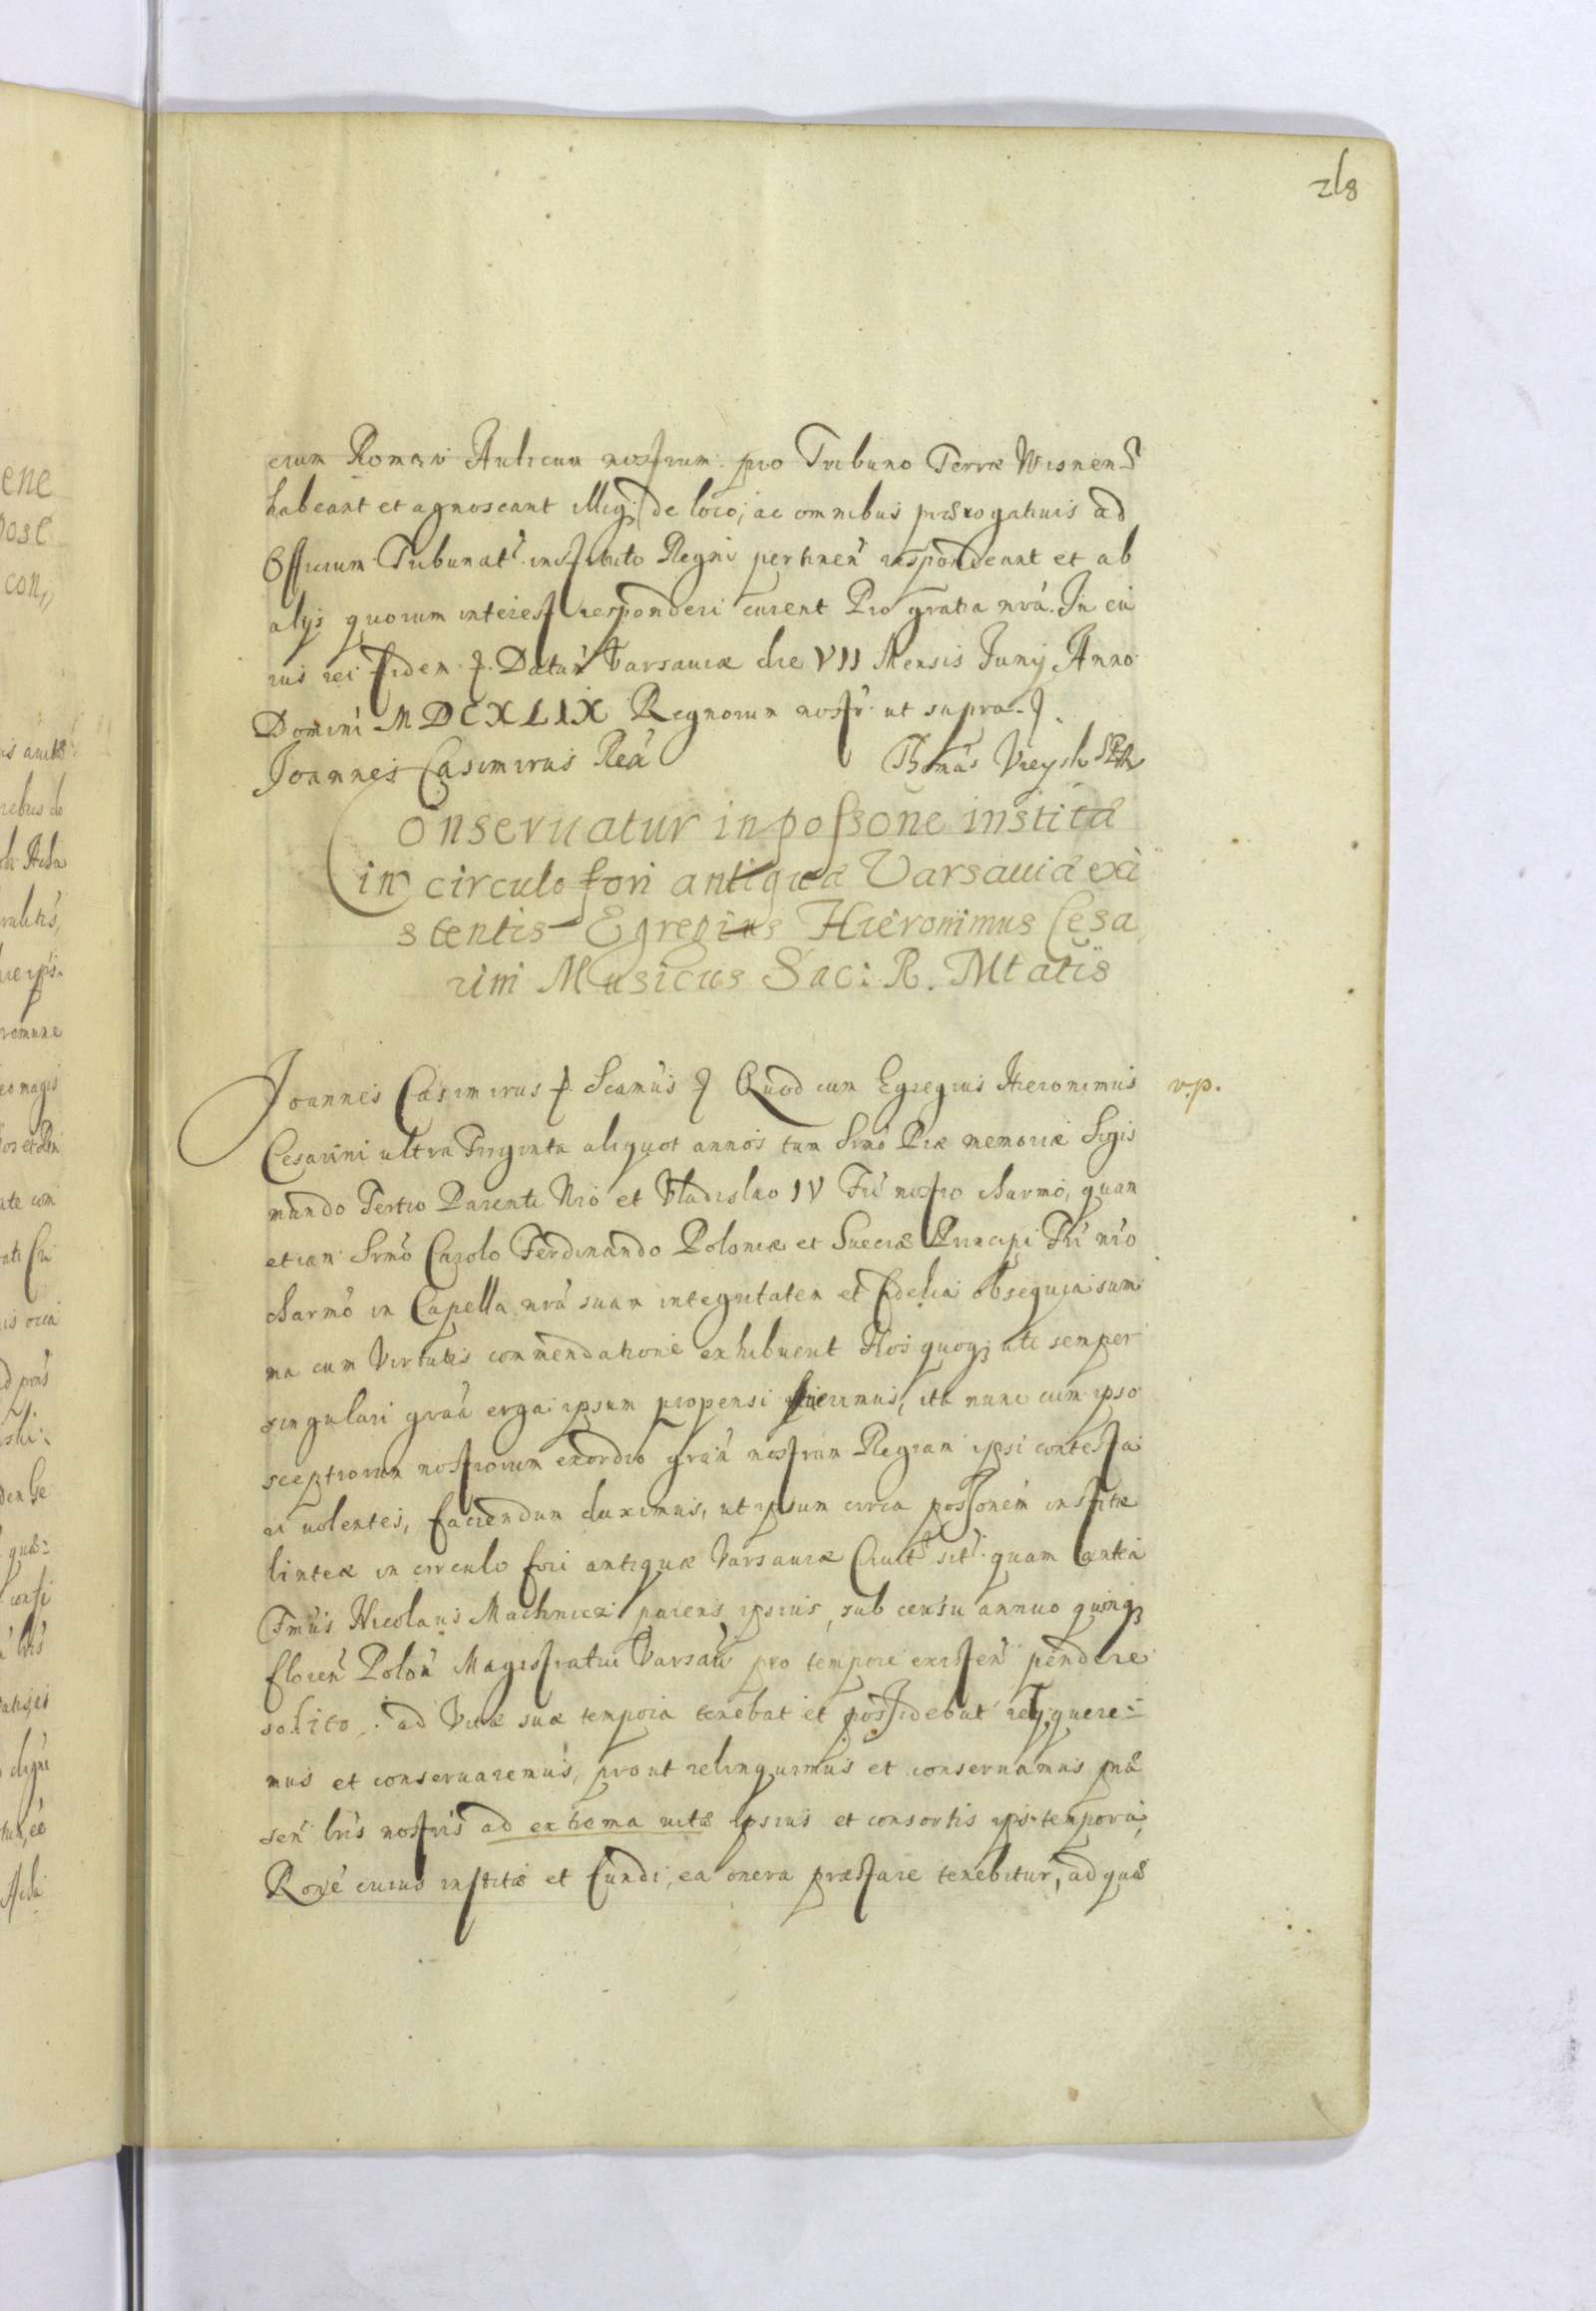 218
cium Romani Aulicum nostrum pro Tribuno Terræ Wisnens
habeant et agnoscant illiq; de loco, ac omnibus prærogatiuis ad
Officium Tribunat' instituto Regni pertinen' respondeant et ab
alijs quorum interest responderi curent Pro gratia nrâ. In cu
ius rei fidem. Datum Varsauiæ die VII Mensis Junij Anno
Domini MDCXLIX Regnorum nostr' ut supra.
Joannes Casimirus Rex Thomas Vieysk SRM
Conseruatur in possone institæ
in circulo fori antiquæ Varsauiæ exi
stentis Egregius Hieronimus Cesa
rini Musicus Sac: R. Mtatis
Joannes Casimirus Scamus Quod cum Egregius Hieronimus v.p.
Cesarini ultra Triginta aliquot annos tum Srmo Piæ memoriæ Sigis
mundo Tertio Parenti Nro et Vladislao IV Fri nostro charmo, quam
etiam Srmo Carolo Ferdinando Poloniæ et Sueciæ Principi Fri nro
charmo in Capella nrâ suam integritatem et fidelia obsequia sum
ma cum Virtutis commendatione exhibuerit Nos quoq; uti semper
singulari grâa erga ipsum propensi fuerimus, ita nunc cum ipso
sceptrorum nostrorum exordio gram nostram Regiam ipsi contesta
ri uolentes, faciendum duximus, ut ipsum circa possonem institæ
linteæ in circulo fori antiquæ Varsauiæ Ciuit' sit' quam antea
Fmus Nicolaus Machnicki parens ipsius, sub censu annuo quinq;
floren' Polon' Magistratui Varsau' pro tempore existen' pendere
solito ad Vitæ suæ tempora tenebat et possidebat relinquere=
mus et conseruaremus, prout relinquimus et conseruamus præ
sen' lris nostris ad extrema uitæ ipsius et consortis ips' tempora,
Rone cuius institæ et fundi, ea onera præstare tenebitur, ad quæ